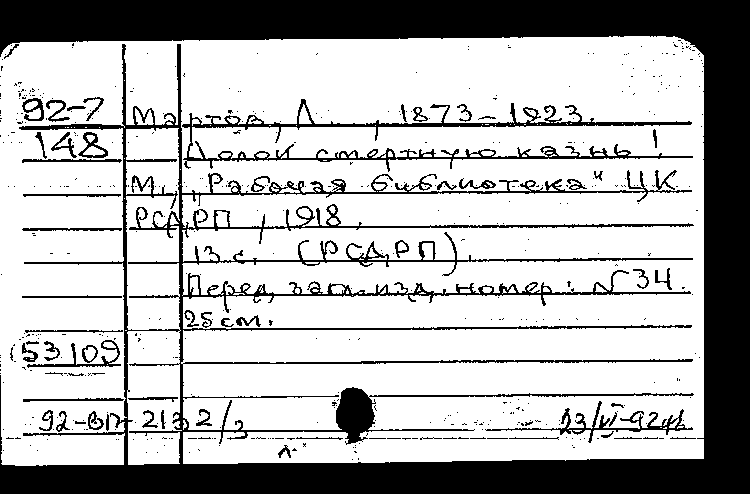 92-7 Мартов, Л. , 1873-1923.
148 Долой смертную казнь!
М., „Рабочая библиотека" ЦК
РСДРП, 1918.
13 с. (РСДРП).
Перед загл. изд. номер: N 34.
25 см.
53109
92-ВП-2132/3 23/VI-92